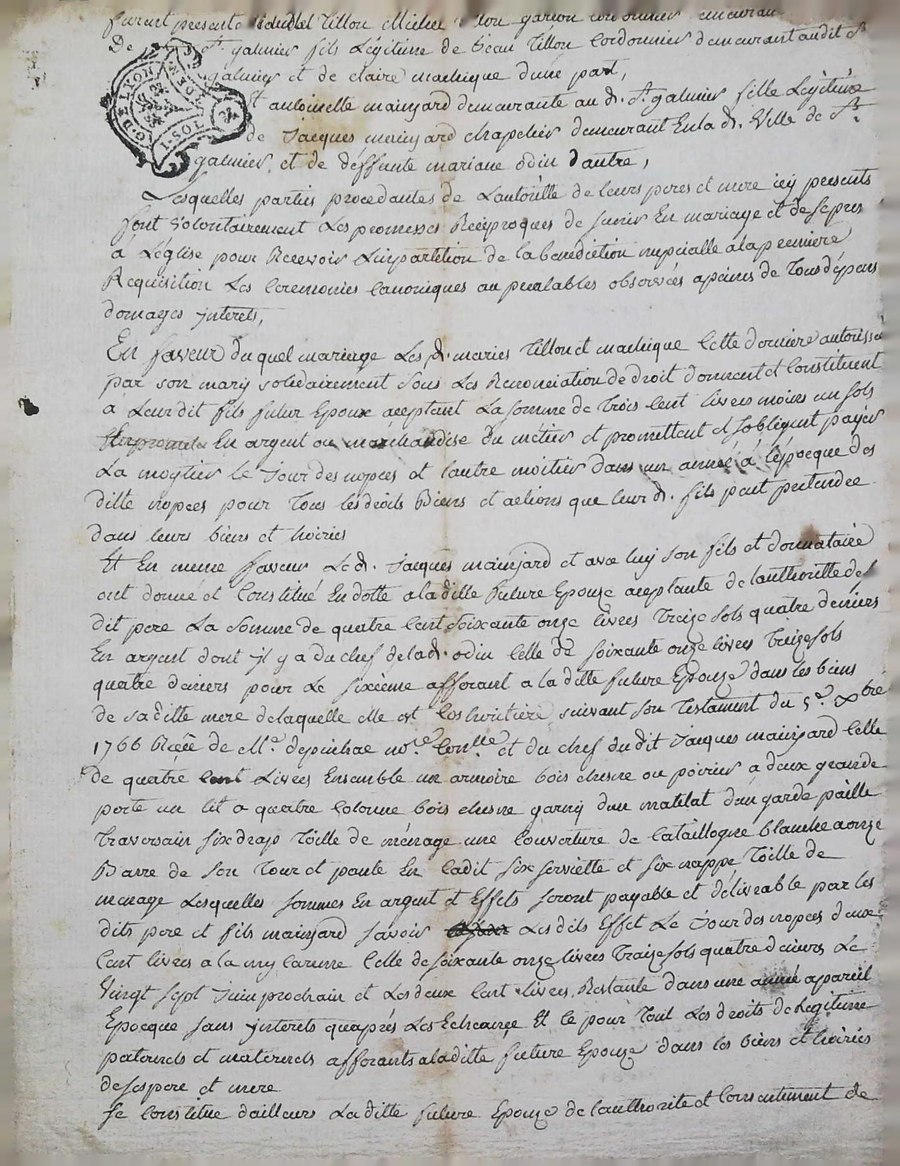 furent presents Tillon garcon cordonier demeurant
De St galmier fils Légitime de beau Tillon Cordonnier demeurant audit St
G. DE LYON
1. SOL
galmier et de claire machique d'une part,
Et antoinette mainjard demeurante au d. St galmier fille Légitime
de Jacques mainjard chapelier demeurant En la d. Ville de St
galmier, et de deffunte mariane odin d'autre,
Lesquelles partis procedantes de Lautorité de leurs peres et mere icy presents
font Volontairement Les promesses Réciproques de sunir En mariage et de se pns
à L'église pour Recevoir Limpartition de la benediction nupcialle a la premiere
Requisition Les Ceremonies Canoniques au prealables observées apeines de Tous dépens
domages ynterets,
En faveur Du quel mariage Les d. maries Tillon et machique Cette derniere autorisée
par son mary solidairement sous Les Renonciation de droit donnent et Constituent
a Leur dit fils futur Epoux aceptant La somme de Trois Cent livres moins un sols
En argent ou marchandise du métier et promettent et sobligent payer
La moytier le Jour des nopces et l'autre moitier dans un année à l'épocque des
ditte nopces pour Tous les droits Biens et actions que leur d. fils peut pretendre
dans leurs biens et hoiries
Et En meme faveur Led. Jacques mainjard et avec luy son fils et donnataire
ont donné et Constitué En dotte a la ditte future Epouze aceptante de l'authoritté desd
dit pere La somme de quatre Cent soixante onze livres Traize sols quatre deniers
En argent dont il y a du chef de lad. odin Celle de soixante onze livres Treize sols
quatre deniers pour Le sixieme afferant a la ditte future Epouze dans les biens
de sa ditte mere de laquelle elle est Coshoritiere, suivant son Testament du 5e xbre
1766 Recu de Me. depinhac nore et du chef du dit Jacques mainjard Celle
de quatre cent Livres Ensemble un armoire bois chesne ou poirier a deux grande
porte un lit a quatre Colonne bois chesne garny d'un matelat d'un garde paille
Traversain six drap Toille de ménage une Couverture de Cataillogne blanche a onze
Barre de son Tour et pante En Cadit six serviette et six nappe Toille de
menage Lesquelles sommes En argent et Effets seront payable et déliveable par les
dits pere et fils mainjard savoir Les dits Effet Le Jour des nopces deux
Cent livres a la my Careme Celle de soixante onze livres Traize sols quatre deniers Le
Vingt sept Juin prochain et Les deux Cent livres Restante dans une année apareil
Epocque sans ynterets quaprés Les Echeance Et ce pour Tout Les droits de Legitime
paternels et maternels afferants a la ditte future Epouze dans les biens et hoiries
de ses pere et mere
se Constitue d'ailleurs La ditte future Epouze de l'authorite et Consentement de